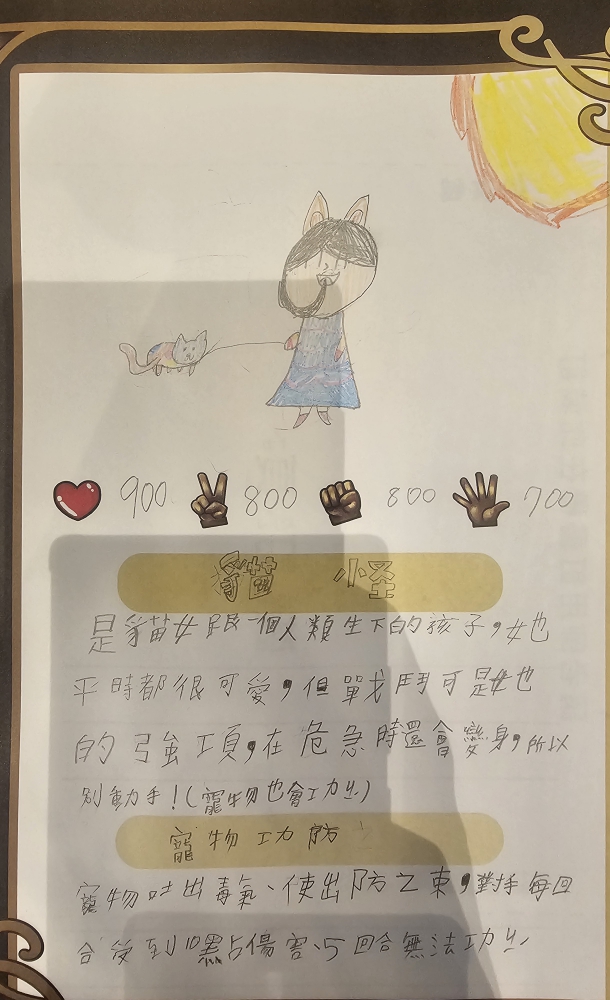 900 800 800 700
貓 小怪
是貓女跟一個人類生下的孩子，她也
平時都很可愛，但戰鬥可是她
的強項，在危急時還會變身，所以
別動手！（寵物也會功火）
寵物功防
寵物吐出毒氣、使出防之束，對手每回
合受到10點傷害、5回合無法功火